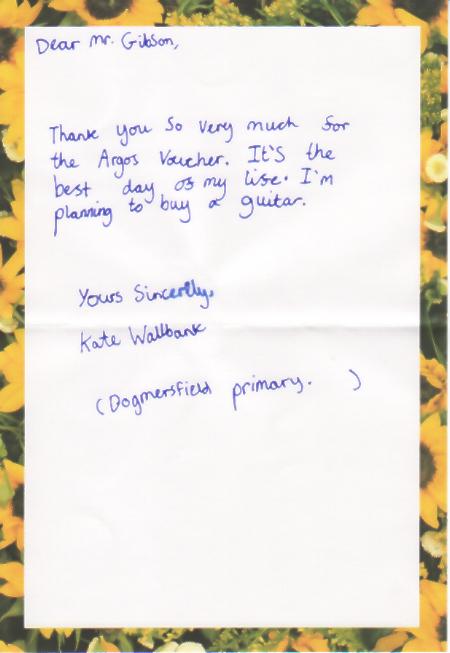 Dear Mr. Gibson,
Thank you so very much for
the Argos Voucher. It's the
best day of my life. I'm
planning to buy a guitar.
Yours Sincerelly,
Kate Wallbank
(Dogmersfield primary. )